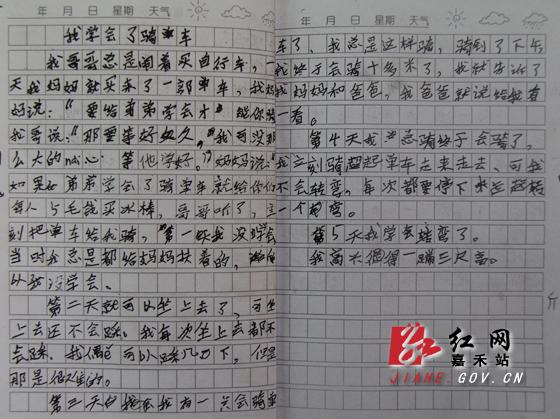 年 月 日 星期 天气
我学会了骑单车
我哥哥总是闹着买自行车，一
天我妈妈就买来了一部单车，我妈
妈说：“要给弟弟学会才 让你骑
我哥说：“那要等好如久，我可没那
么大的nai心 等他学好。”妈妈说：“
如果你弟弟学会了骑单车就给你们
每人5毛钱买冰棒，哥哥听了，立
刻把单车给我骑，第一次我没学会
当时我总是都给妈妈扶着的，
以我没学会。
第二天就可以坐上去了，可坐
上去还不会踩。我每次坐上去都不
会踩，我偶 可以踩几口下，但是
那是很 的。
第三天 我 一点会骑单
年 月 日 星期 天气
车了，我总是这样骑，骑到了下午
我终于会骑十多米了，我就告诉了
我妈妈和爸爸，我爸爸就说给我看
一看。
第4天我 总骑终于会骑了，
我立刻骑 起单车走来走去，可我
不会转弯，每次都要停下来
一个 弯。
第5天我学会转弯了。
我高兴得一蹦三尺高。
斤
红网
嘉禾站
JIAHE.GOV.CN